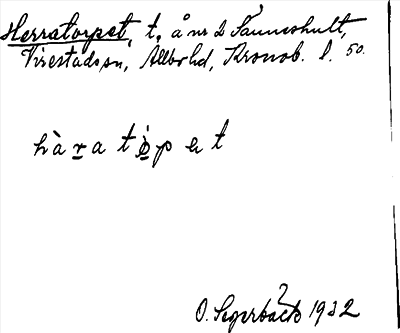 Herratorpet, t. å nr 2 Sånneshult,
Virestads sn, Allbo hd, Kronob. l. 50.
hàr̲a tò̲p et
?
O. Segerbäck 1932